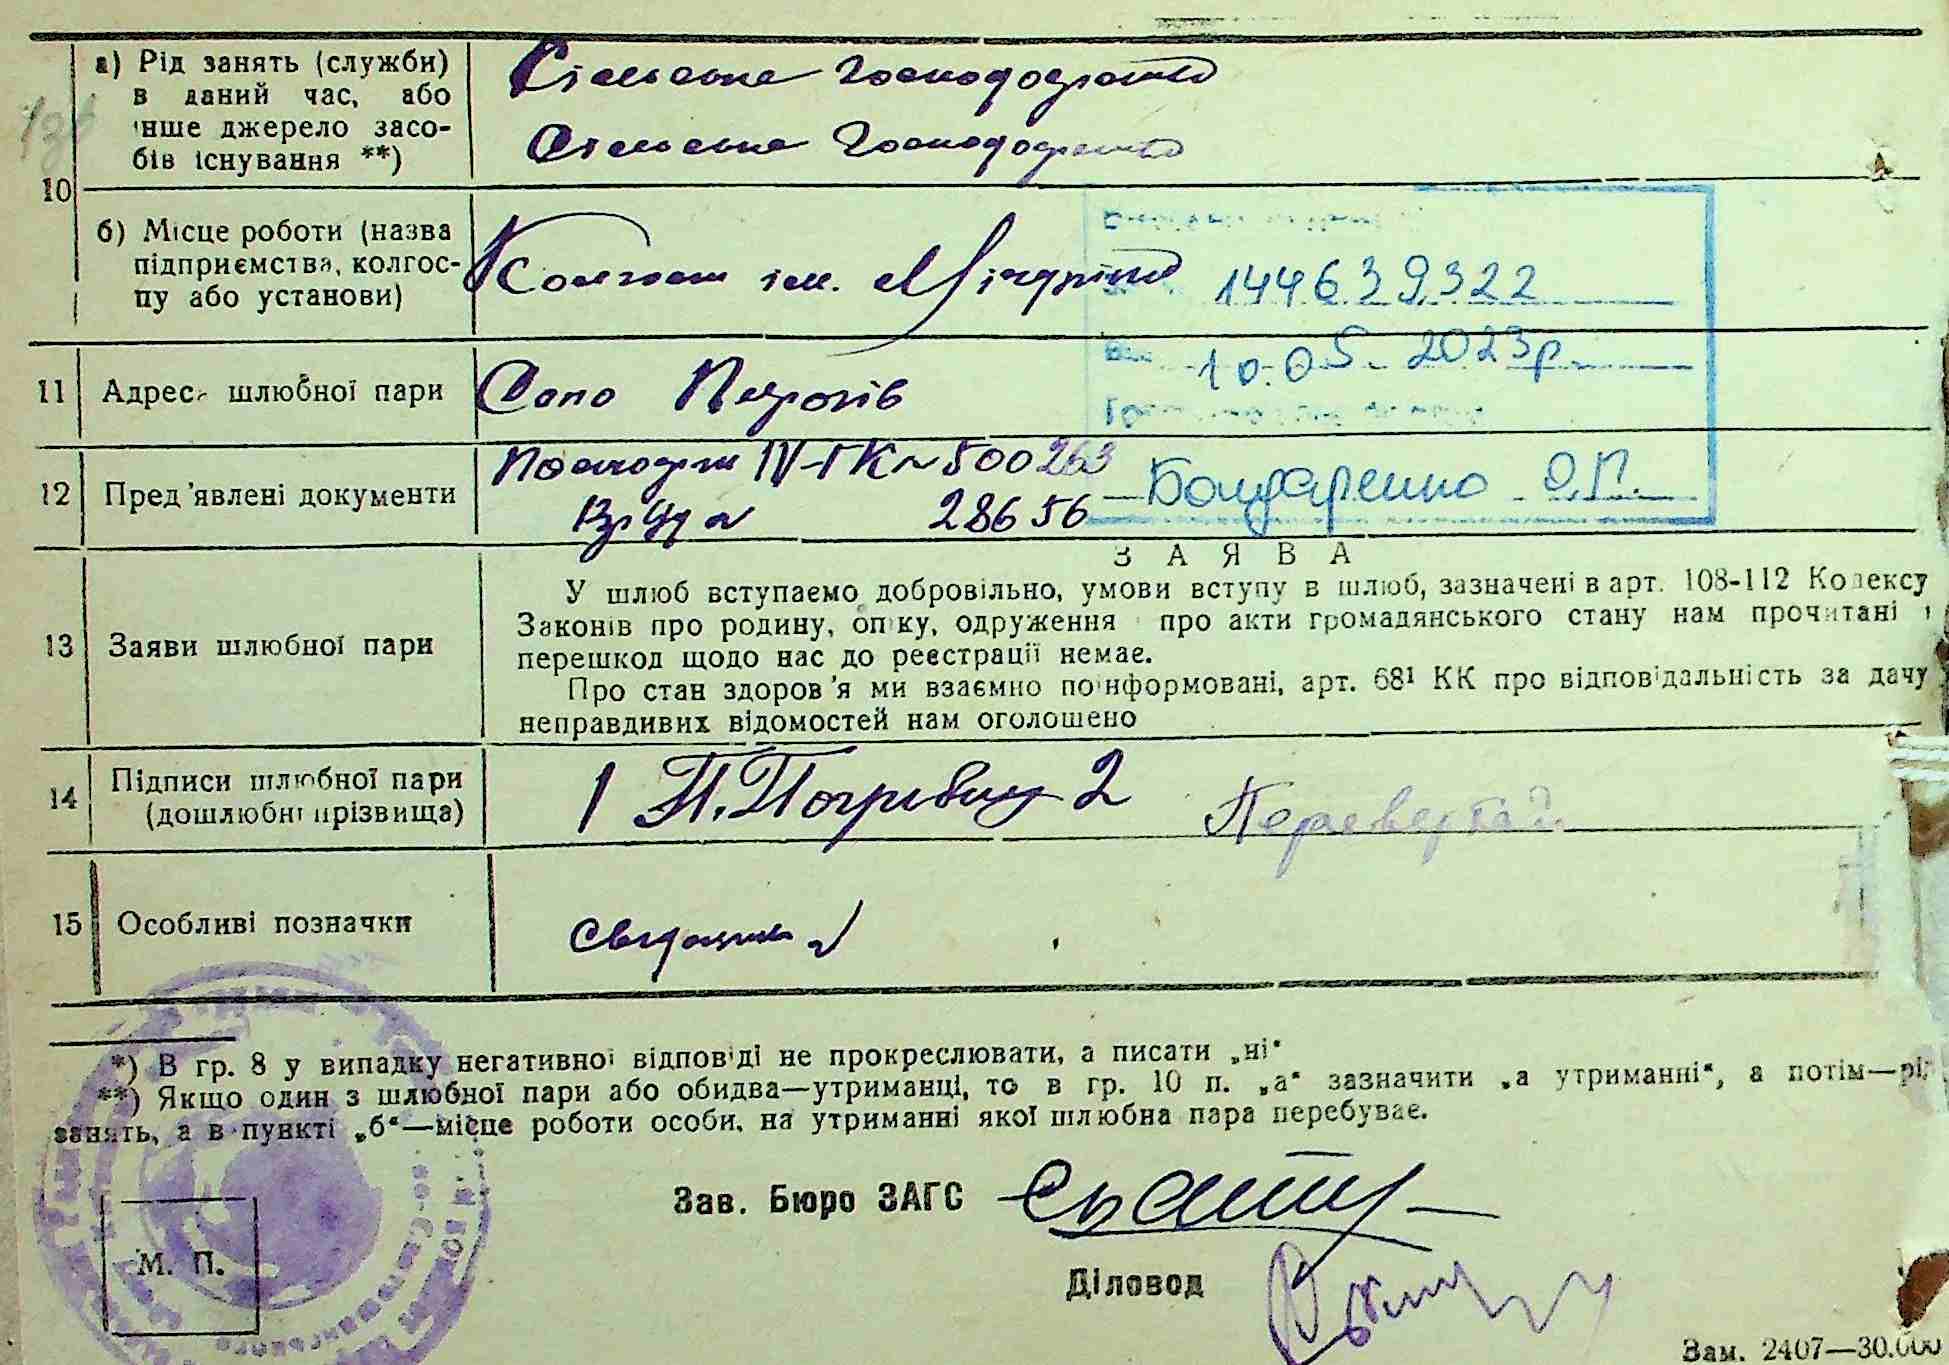 10
а) Рід занять (служби)
в даний час, або
інше джерело засо-
бів існування **)
Сільське господарство
Сільське господарство
б) Місце роботи (назва
підприємства, колгос-
пу або установи)
Колгосп ім.
144639322
10.05.2023р.
Бондаренко О.П.
11 Адреса шлюбної пари
Село
12 Пред'явлені документи
IV-ГК № 500263
28656
ЗАЯВА
13 Заяви шлюбної пари
У шлюб вступаємо добровільно, умови вступу в шлюб, зазначені в арт. 108-112 Кодексу
Законів про родину, опіку, одруження і про акти громадянського стану нам прочитані і
перешкод щодо нас до реєстрації немає.
Про стан здоров'я ми взаємно поінформовані, арт. 68¹ КК про відповідальність за дачу
неправдивих відомостей нам оголошено
14 Підписи шлюбної пари
(дошлюбні прізвища)
1 П. 2
15 Особливі позначки
*) В гр. 8 у випадку негативної відповіді не прокреслювати, а писати „ні“
**) Якщо один з шлюбної пари або обидва—утриманці, то в гр. 10 п. „а“ зазначити „а утриманні“, а потім—рід
занять, а в пункті „б“—місце роботи особи, на утриманні якої шлюбна пара перебуває.
Зав. Бюро ЗАГС
М. П.
Діловод
Зам. 2407—30.000